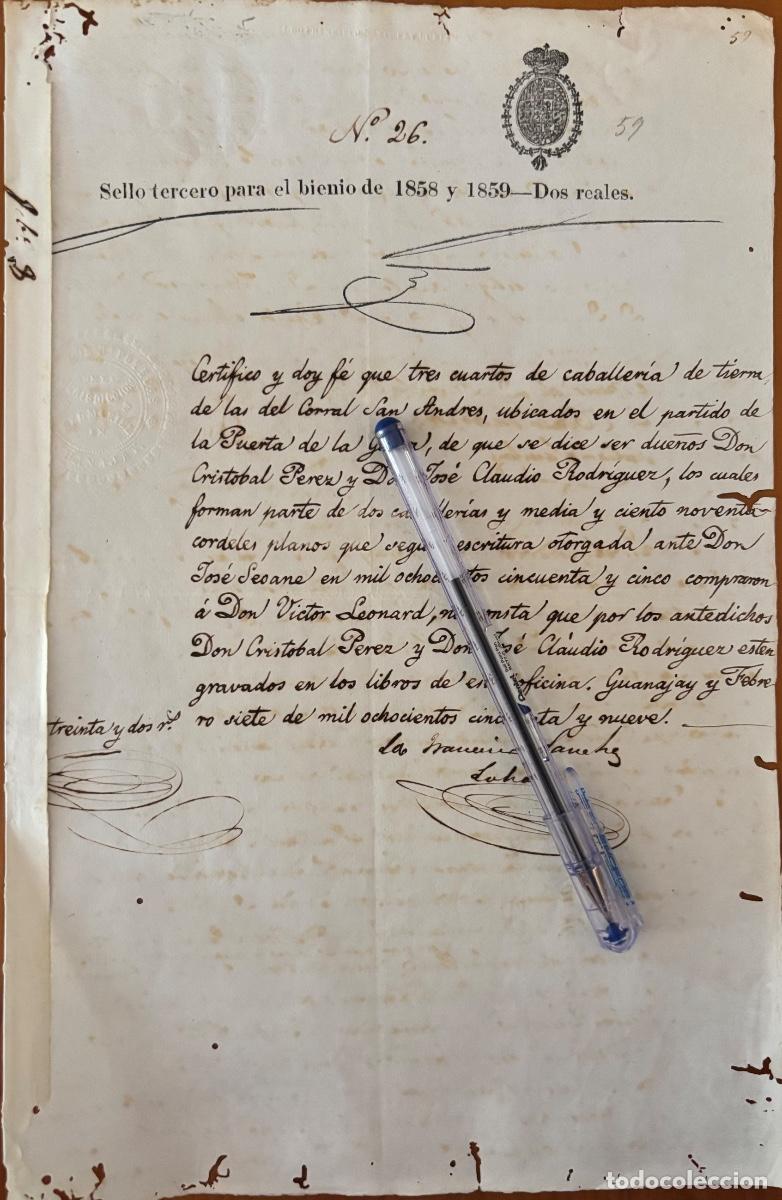 59
Nº 26.
59
Sello tercero para el bienio de 1858 y 1859—Dos reales.
Certifico y doy fé que tres cuartos de caballería de tierra,
de las del Corral San Andres, ubicados en el partido de
la Puerta de la G, de que se dice ser dueños Don
Cristobal Perez y Don José Claudio Rodríguez, los cuales
forman parte de dos caballerías y media y ciento noventa
cordeles planos que segun escritura otorgada ante Don
José Seoane en mil ochocientos cincuenta y cinco compraron
á Don Victor Leonard, no consta que por los antedichos
Don Cristobal Perez y Don José Cláudio Rodríguez esten
gravados en los libros de oficina. Guanajay y Febre-
ro siete de mil ochocientos cincuenta y nueve.
treinta y dos rs.
todocoleccion